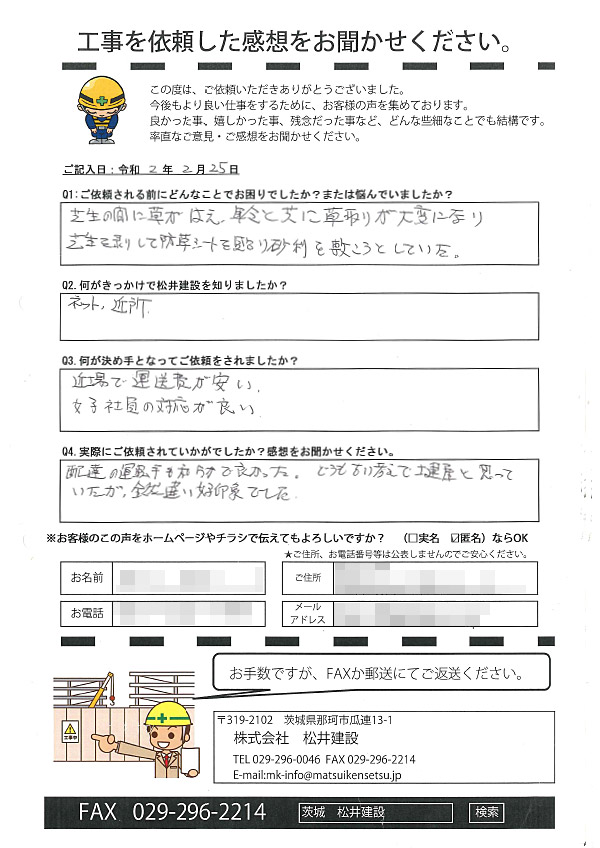 工事を依頼した感想をお聞かせください。
この度は、ご依頼いただきありがとうございました。
今後もより良い仕事をするために、お客様の声を集めております。
良かった事、嬉しかった事、残念だった事など、どんな些細なことでも結構です。
率直なご意見・ご感想をお聞かせください。
ご記入日：令和 2 年 2 月 25 日
Q1：ご依頼される前にどんなことでお困りでしたか？または悩んでいましたか？
芝生の間に草がはえ、年令と共に草取りが大変になり
芝生を剥して防草シートを貼り砂利を敷こうとしていた。
Q2. 何がきっかけで松井建設を知りましたか？
ネット，近所
Q3. 何が決め手となってご依頼をされましたか？
近場で運送費が安い、
女子社員の対応が良い
Q4. 実際にご依頼されていかがでしたか？感想をお聞かせください。
配達の運転手も で良かった。 で土建屋と思って
いたが、全然違い好印象でした
※お客様のこの声をホームページやチラシで伝えてもよろしいですか？ （□実名 ☑匿名）ならOK
★ご住所、お電話番号等は公表しませんのでご安心ください。
お名前 ご住所
お電話 メール
アドレス
お手数ですが、FAXか郵送にてご返送ください。
〒319-2102 茨城県那珂市瓜連13-1
株式会社 松井建設
TEL 029-296-0046 FAX 029-296-2214
E-mail:mk-info@matsuikensetsu.jp
工事中
FAX 029-296-2214 茨城 松井建設 検索